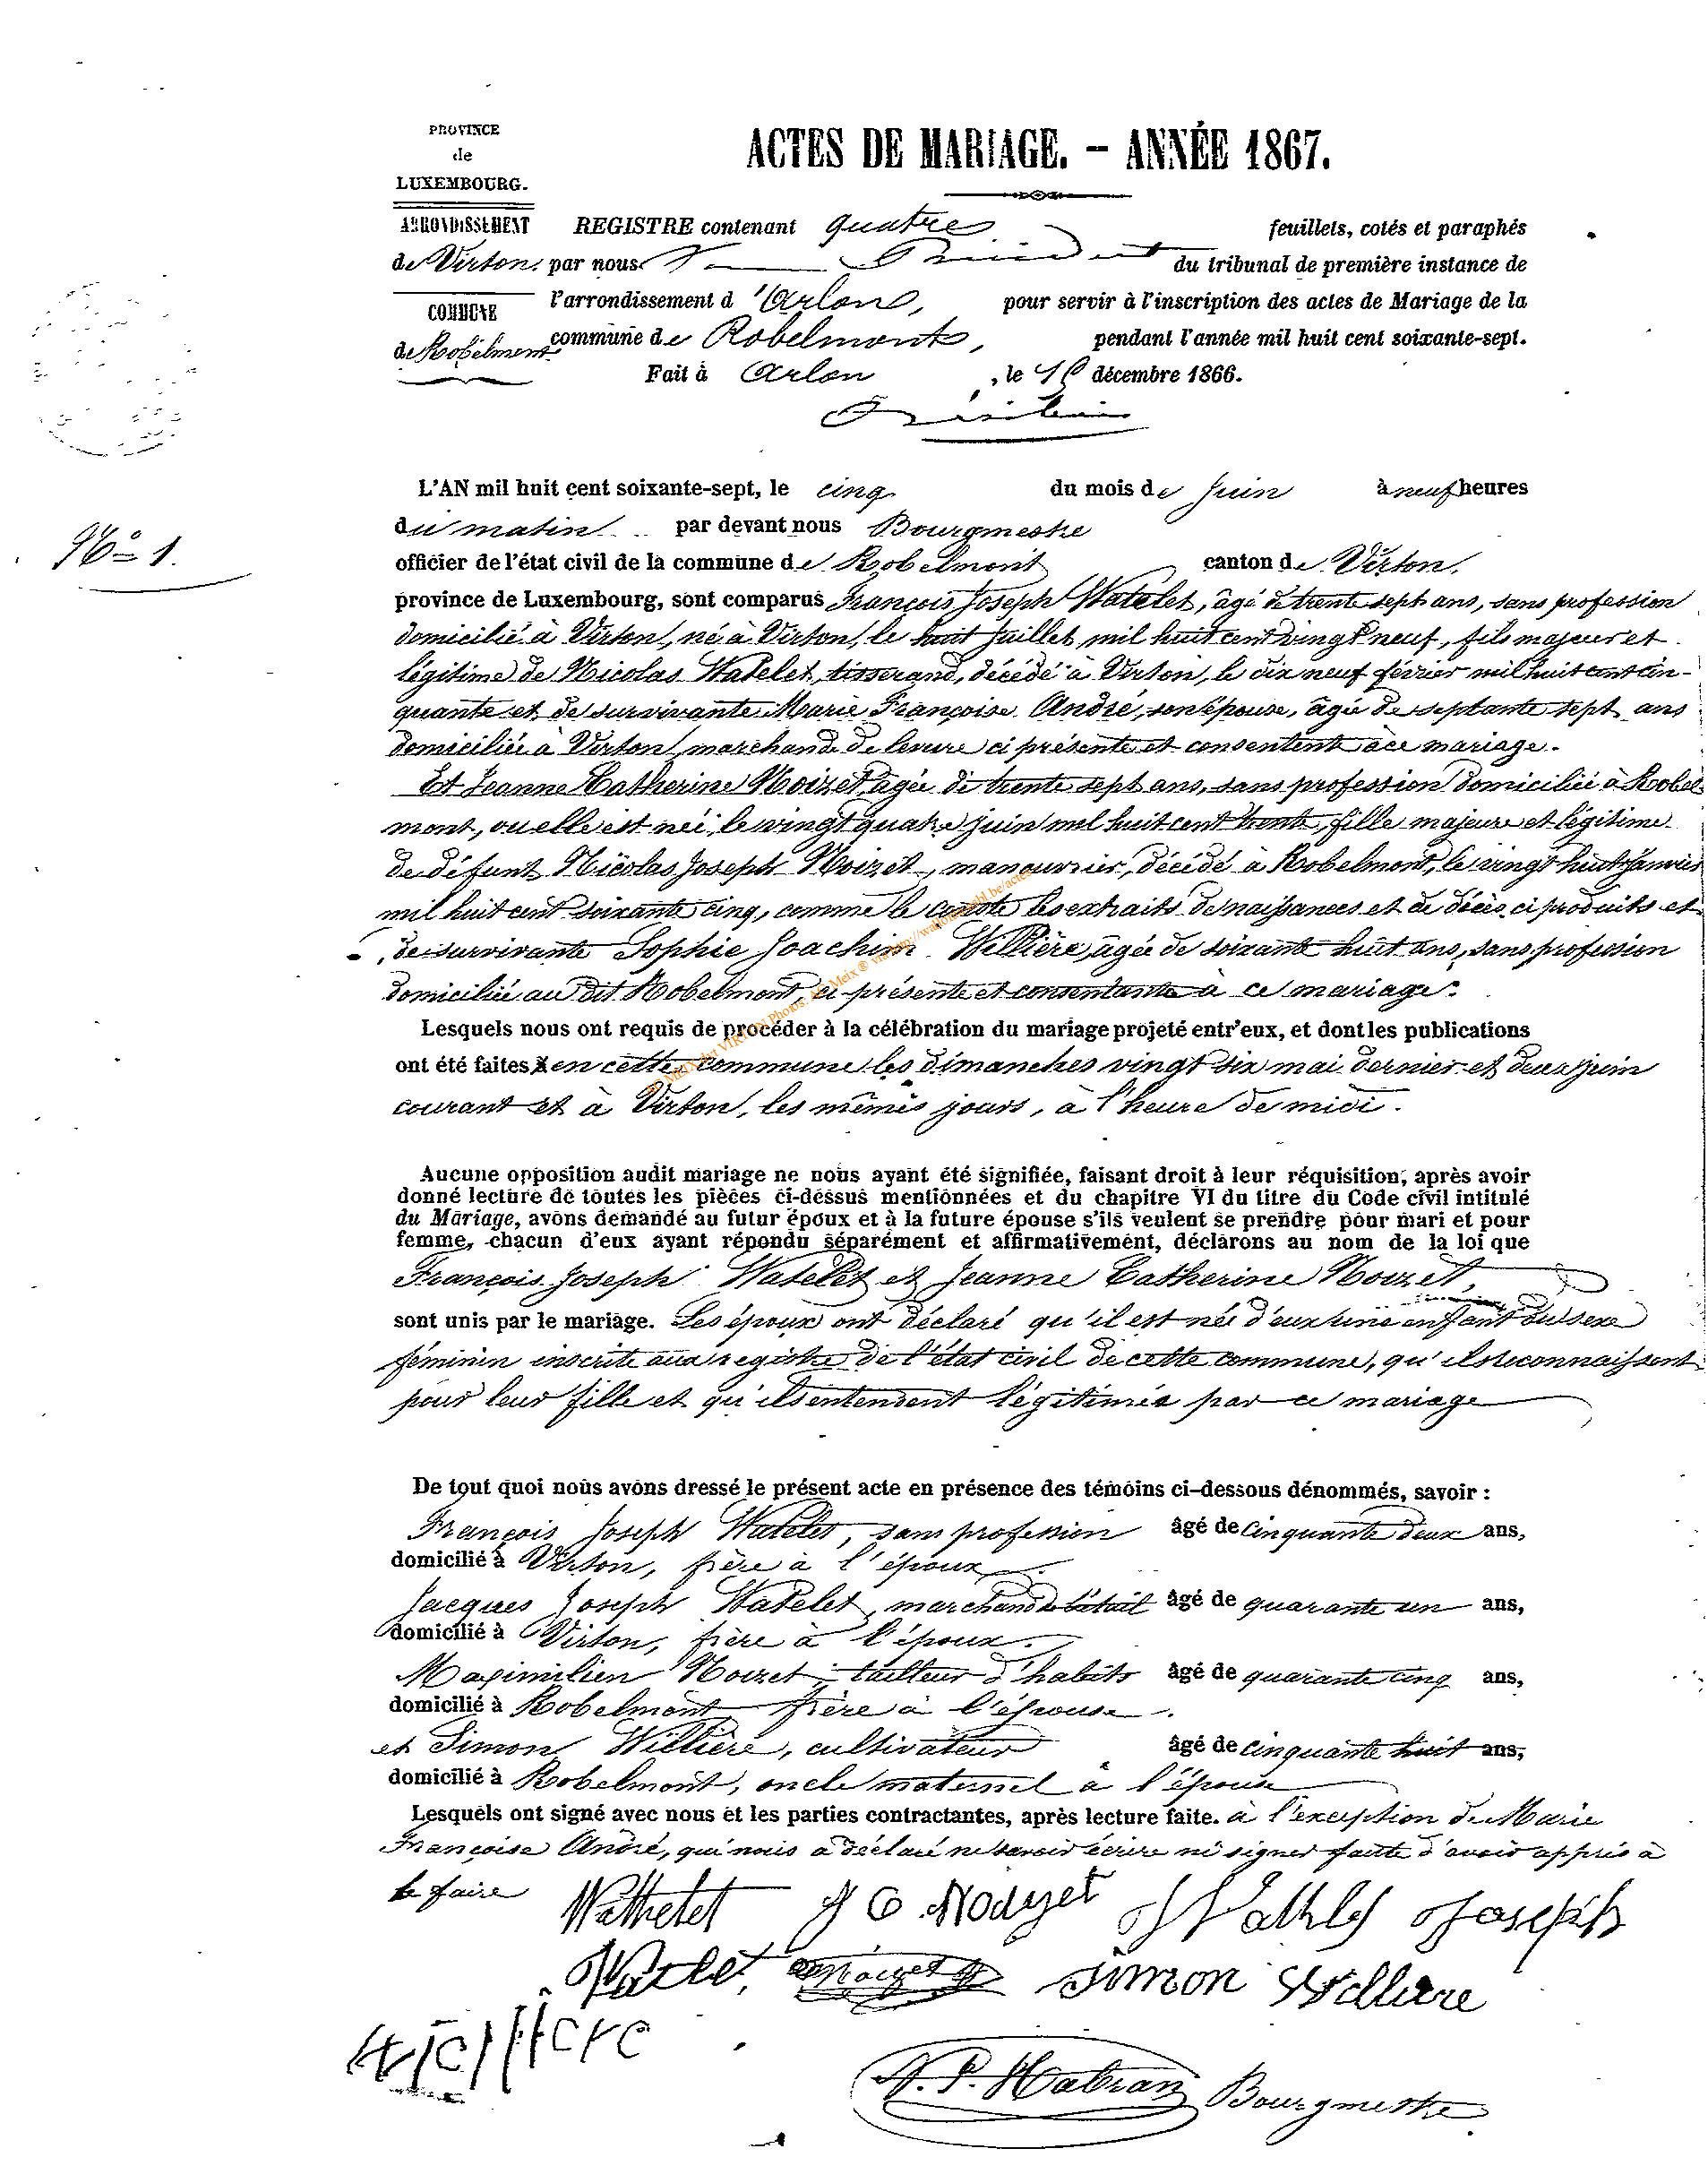 PROVINCE
de
LUXEMBOURG.
ARRONDISSEMENT
de Virton.
COMMUNE
de Robelmont
ACTES DE MARIAGE. - ANNÉE 1867.
REGISTRE contenant quatre feuillets, cotés et paraphés
par nous Président du tribunal de première instance de
l'arrondissement d'Arlon, pour servir à l'inscription des actes de Mariage de la
commune de Robelmont, pendant l'année mil huit cent soixante-sept.
Fait à Arlon, le décembre 1866.
N° 1.
L'AN mil huit cent soixante-sept, le cinq du mois de Juin à neuf heures
du matin par devant nous Bourgmestre
officier de l'état civil de la commune de Robelmont canton de Virton,
province de Luxembourg, sont comparus François Joseph Watelet, âgé de trente sept ans, sans profession
domicilié à Virton, né à Virton, le huit Juillet mil huit cent vingt neuf, fils majeur et
légitime de Nicolas Watelet, tisserand, décédé à Virton, le dix neuf février mil huit cent cin-
quante et de survivante Marie Françoise André, son épouse, âgée de septante sept ans
domiciliée à Virton, marchande de levure ci présente et consentente à ce mariage.
Et Jeanne Catherine Noizet, âgée de trente sept ans, sans profession domiciliée à Robel
mont, ou elle est née, le vingt quatre juin mil huit cent trente, fille majeure et légitime
de défunt Nicolas Joseph Noizet, manouvrier, décédé à Robelmont, le vingt huit Janvier
mil huit cent soixante cinq, comme le constate les extraits de naissances et de décès ci produits et
de survivante Sophie Joachim Willière, âgée de soixante huit ans, sans profession
domiciliée au dit Robelmont, ci présente et consentante à ce mariage.
Lesquels nous ont requis de procéder à la célébration du mariage projeté entr'eux, et dont les publications
ont été faites en cette commune les dimanches vingt six mai dernier et deux juin
courant et à Virton, les mêmes jours, à l'heure de midi.
Aucune opposition audit mariage ne nous ayant été signifiée, faisant droit à leur réquisition, après avoir
donné lecture de toutes les pièces ci-dessus mentionnées et du chapitre VI du titre du Code civil intitulé
du Mariage, avons demandé au futur époux et à la future épouse s'ils veulent se prendre pour mari et pour
femme, chacun d'eux ayant répondu séparément et affirmativement, déclarons au nom de la loi que
François Joseph Watelet et Jeanne Catherine Noizet,
sont unis par le mariage. Les époux ont déclaré qu'il est née d'eux une enfant du sexe
féminin inscrite aux registre de l'état civil de cette commune, qu'ils reconnaissent
pour leur fille et qu'ils entendent légitimée par ce mariage
De tout quoi nous avons dressé le présent acte en présence des témoins ci-dessous dénommés, savoir :
François Joseph Watelet, sans profession âgé de cinquante deux ans,
domicilié à Virton, frère à l'époux.
Jacques Joseph Watelet, marchand de bétail âgé de quarante un ans,
domicilié à Virton, frère à l'époux.
Maximilien Noizet, tailleur d'habits âgé de quarante cinq ans,
domicilié à Robelmont frère à l'épouse.
et Simon Willière, cultivateur âgé de cinquante huit ans,
domicilié à Robelmont, oncle maternel à l'épouse
Lesquels ont signé avec nous et les parties contractantes, après lecture faite. à l'exception de Marie
Françoise André, qui nous a déclaré ne savoir écrire ni signer faute d'avoir appris à
le faire
Wathelet J C Noizet Joseph
Watelet Noizet Simon Willière
Willière
N. P. Habran Bourgmestre